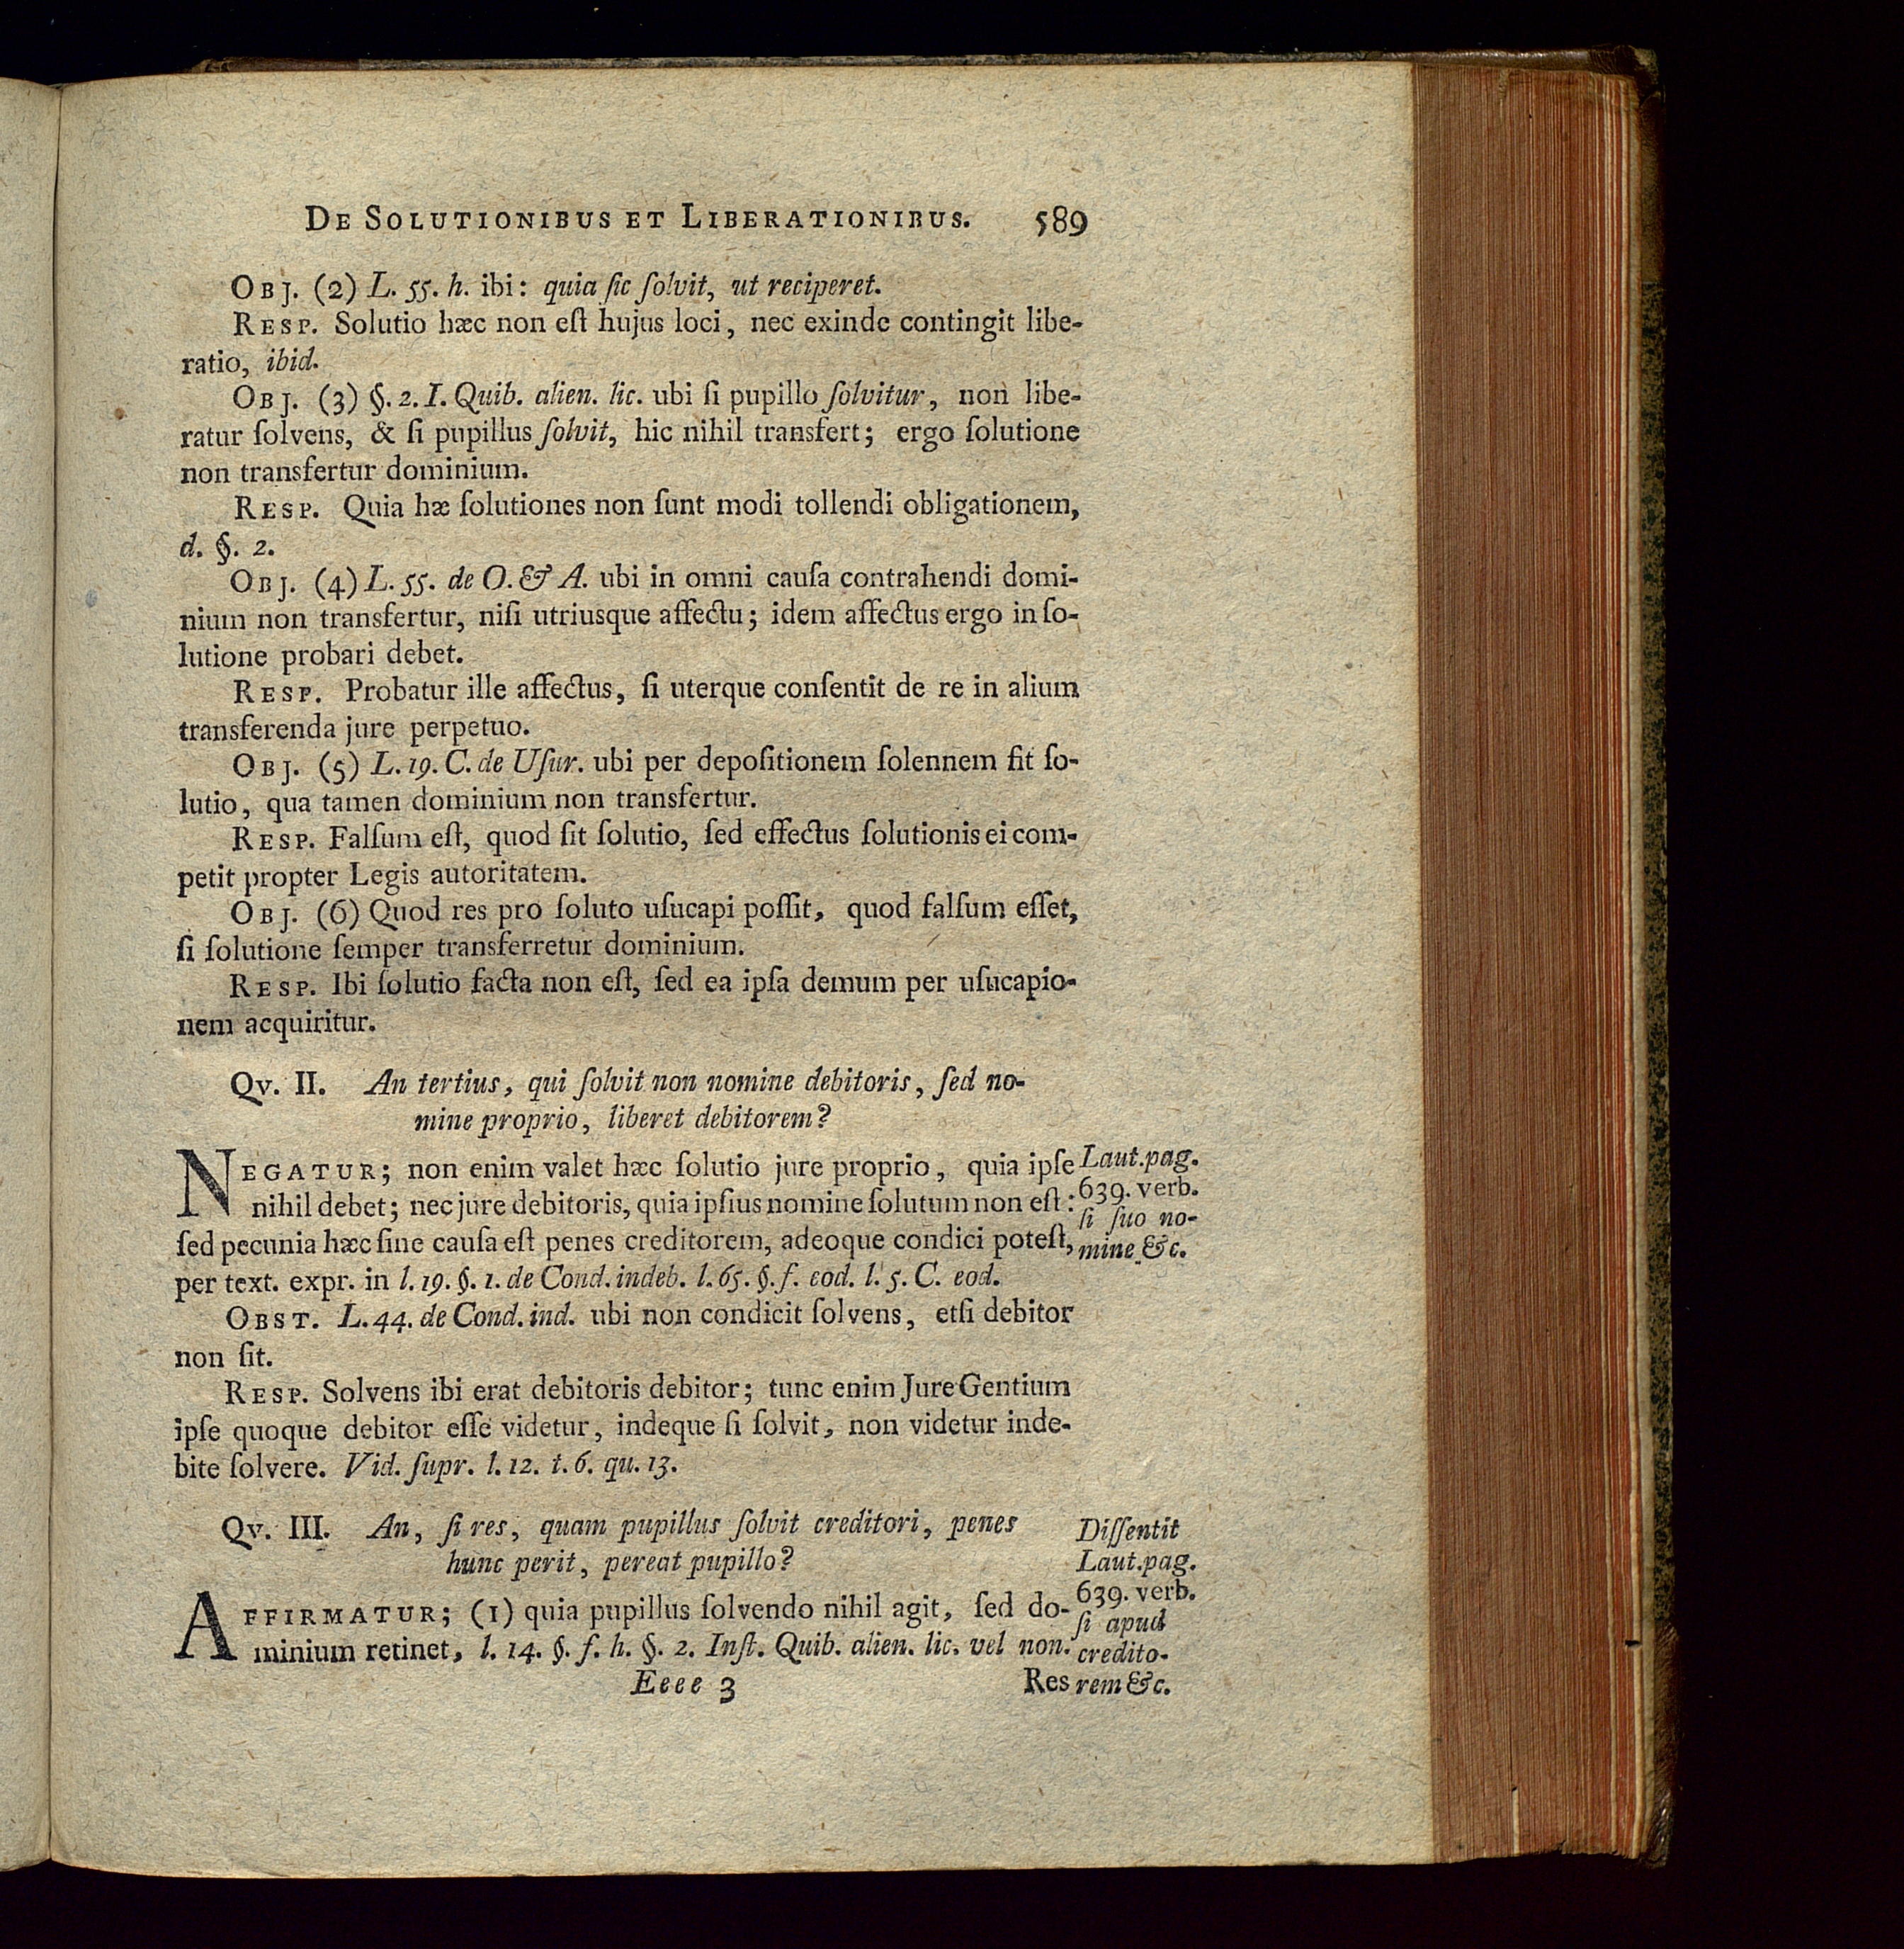 DE SOLUTIONIBUS ET LIBERATIONIBUS. 589
OBJ. (2) L. 55. h. ibi: quia ſic ſolvit, ut reciperet.
RESP. Solutio hæc non eſt hujus loci, nec exinde contingit libe-
ratio, ibid.
OBJ. (3) §. 2. I. Quib. alien. lic. ubi ſi pupillo ſolvitur, non libe-
ratur ſolvens, & ſi pupillus ſolvit, hic nihil transfert; ergo ſolutione
non transfertur dominium.
RESP. Quia hæ ſolutiones non ſunt modi tollendi obligationem,
d. §. 2.
OBJ. (4) L. 55. de O. & A. ubi in omni cauſa contrahendi domi-
nium non transfertur, niſi utriusque affectu; idem affectus ergo in ſo-
lutione probari debet.
RESP. Probatur ille affectus, ſi uterque conſentit de re in alium
transferenda jure perpetuo.
OBJ. (5) L. 19. C. de Uſur. ubi per depoſitionem ſolennem fit ſo-
lutio, qua tamen dominium non transfertur.
RESP. Falſum eſt, quod ſit ſolutio, ſed effectus ſolutionis ei com-
petit propter Legis autoritatem.
OBJ. (6) Quod res pro ſoluto uſucapi poſſit, quod falſum eſſet,
ſi ſolutione ſemper transferretur dominium.
RESP. Ibi ſolutio facta non eſt, ſed ea ipſa demum per uſucapio-
nem acquiritur.
QV. II. An tertius, qui ſolvit non nomine debitoris, ſed no-
mine proprio, liberet debitorem?
NEGATUR; non enim valet hæc ſolutio jure proprio, quia ipſe
nihil debet; nec jure debitoris, quia ipſius nomine ſolutum non eſt:
ſed pecunia hæc ſine cauſa eſt penes creditorem, adeoque condici poteſt,
per text. expr. in l. 19. §. 1. de Cond. indeb. l. 65. §. f. eod. l. 5. C. eod.
Laut. pag.
639. verb.
ſi ſuo no-
mine &c.
OBST. L. 44. de Cond. ind. ubi non condicit ſolvens, etſi debitor
non ſit.
RESP. Solvens ibi erat debitoris debitor; tunc enim Jure Gentium
ipſe quoque debitor eſſe videtur, indeque ſi ſolvit, non videtur inde-
bite ſolvere. Vid. ſupr. l. 12. t. 6. qu. 13.
QV. III. An, ſi res, quam pupillus ſolvit creditori, penes
hunc perit, pereat pupillo?
AFFIRMATUR; (1) quia pupillus ſolvendo nihil agit, ſed do-
minium retinet, l. 14. §. f. h. §. 2. Inſt. Quib. alien. lic. vel non.
Diſſentit
Laut. pag.
639. verb.
ſi apud
credito-
rem &c.
Eeee 3 Res